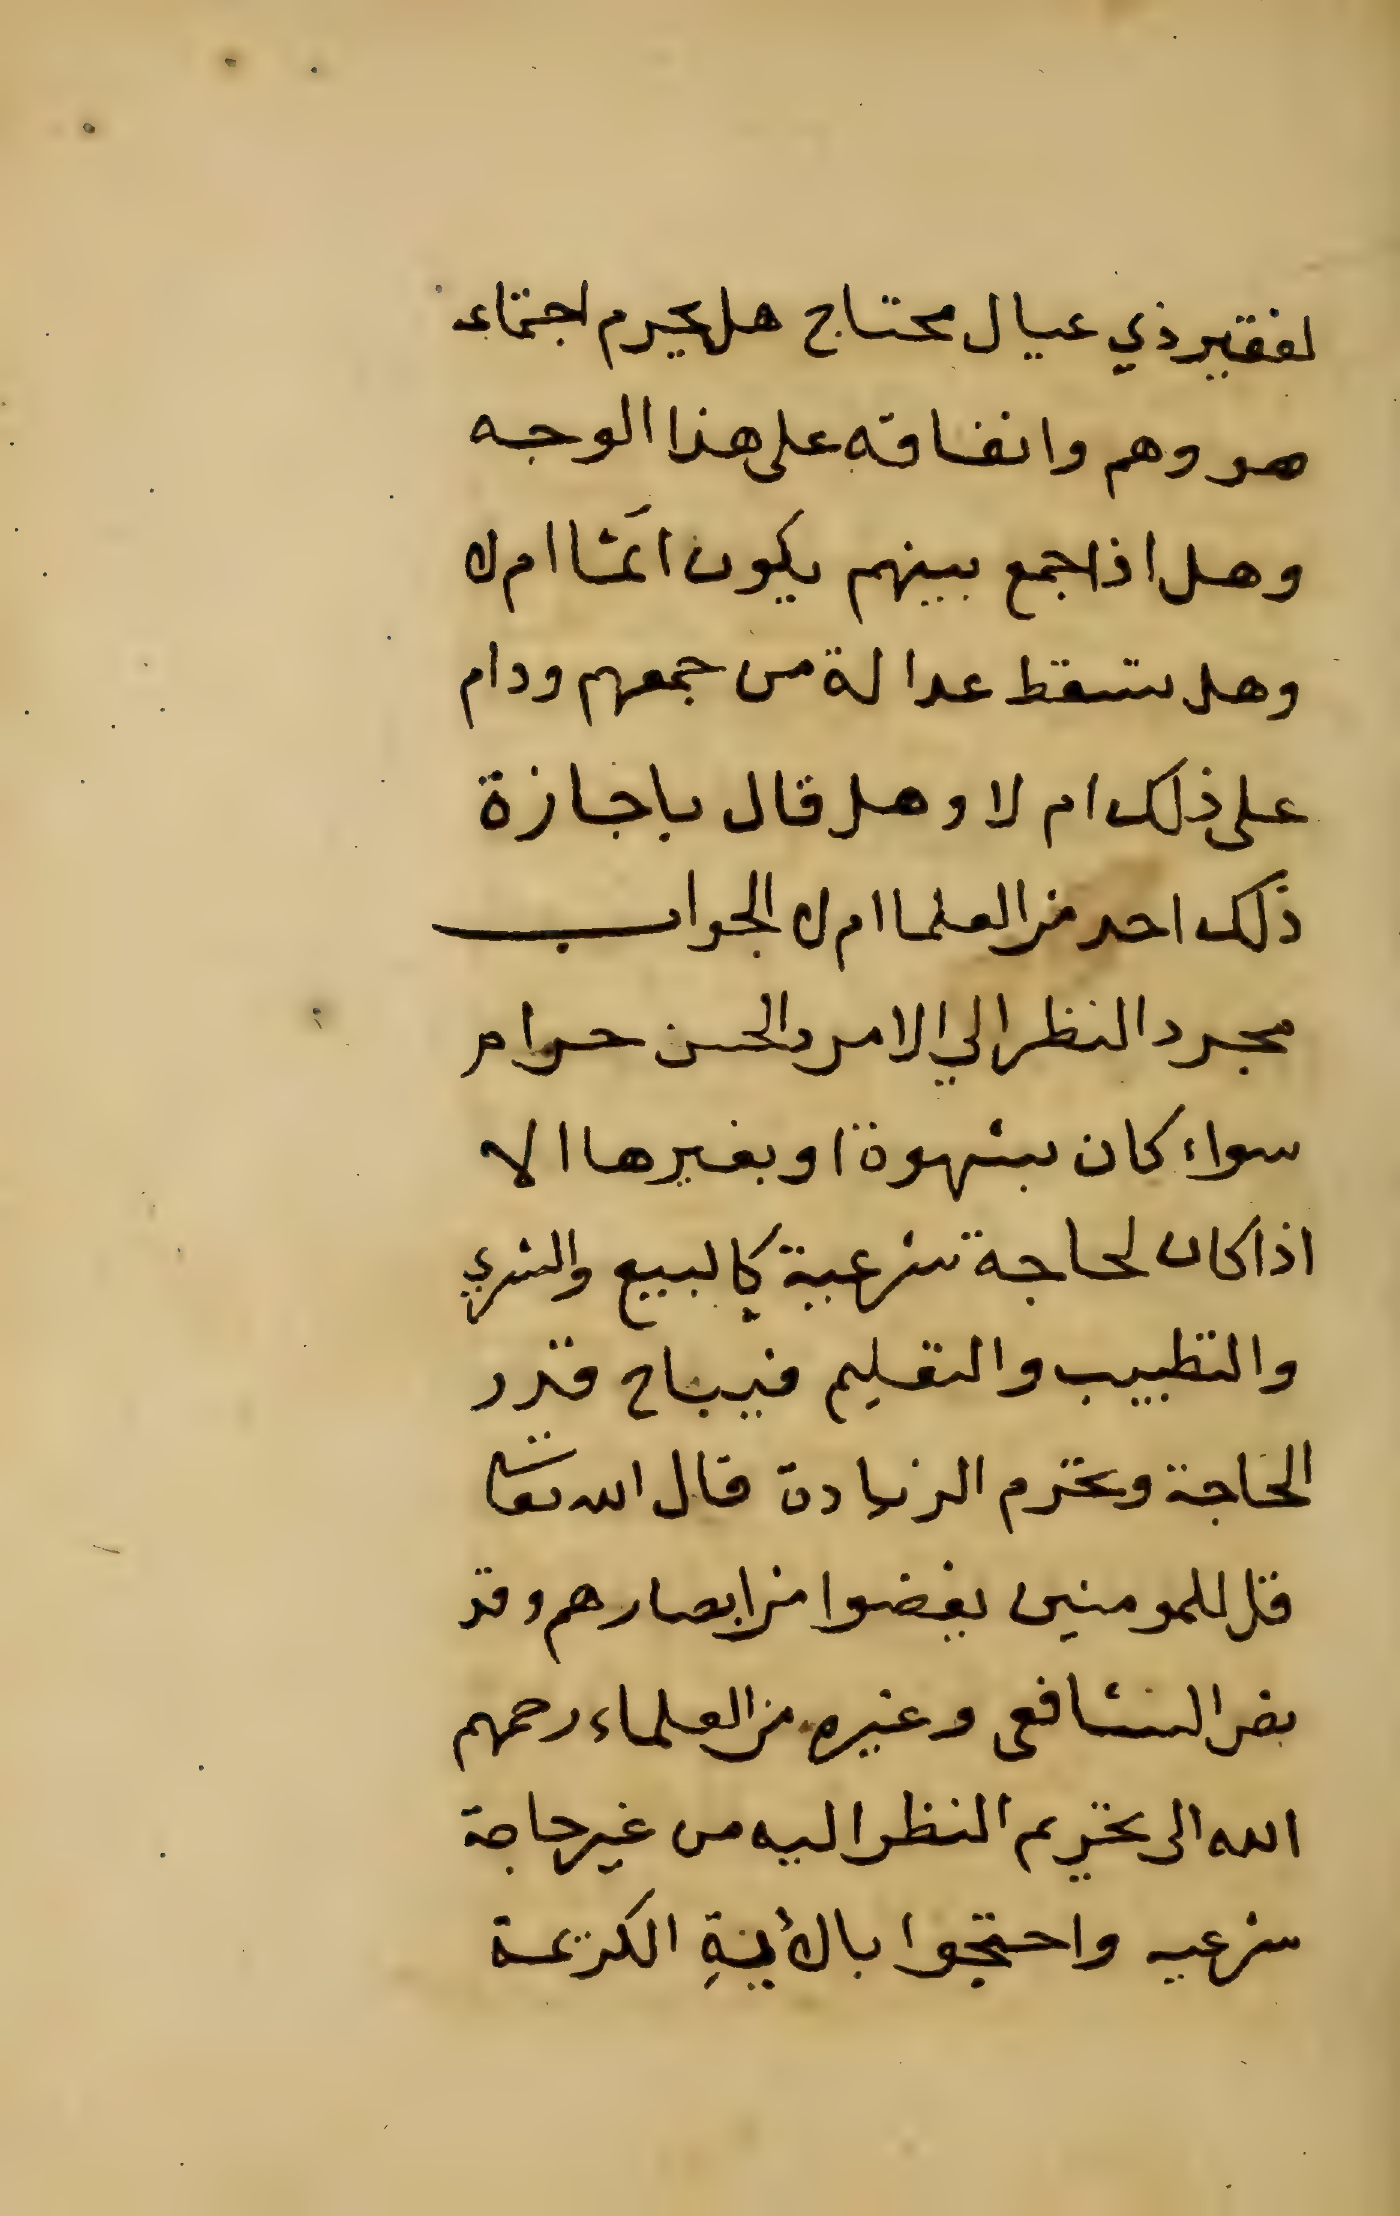 لفقير ذي عيال محتاج هل يحرم اجتماع
هو وهم وانفاقه على هذا الوجه
وهل اذا جمع بينهم يكون اثما ام لا
وهل تسقط عدالة من جمعهم ودام
على ذلك ام لا وهل قال باجازة
ذلك احد من العلما ام لا الجواب
مجرد النظر الي الامرد الحسن حرام
سواء كان بشهوة او بغيرها الا
اذا كان لحاجة شرعية كالبيع والشري
والتطبيب والتعليم فيباح قدر
الحاجة وتحرم الزيادة قال الله تعالى
قل للمومنين يغضوا من ابصارهم وقد
نص الشافعي وغيره من العلماء رحمهم
الله الى تحريم النظر اليه من غير حاجة
شرعيه واحتجوا بالأية الكريمة